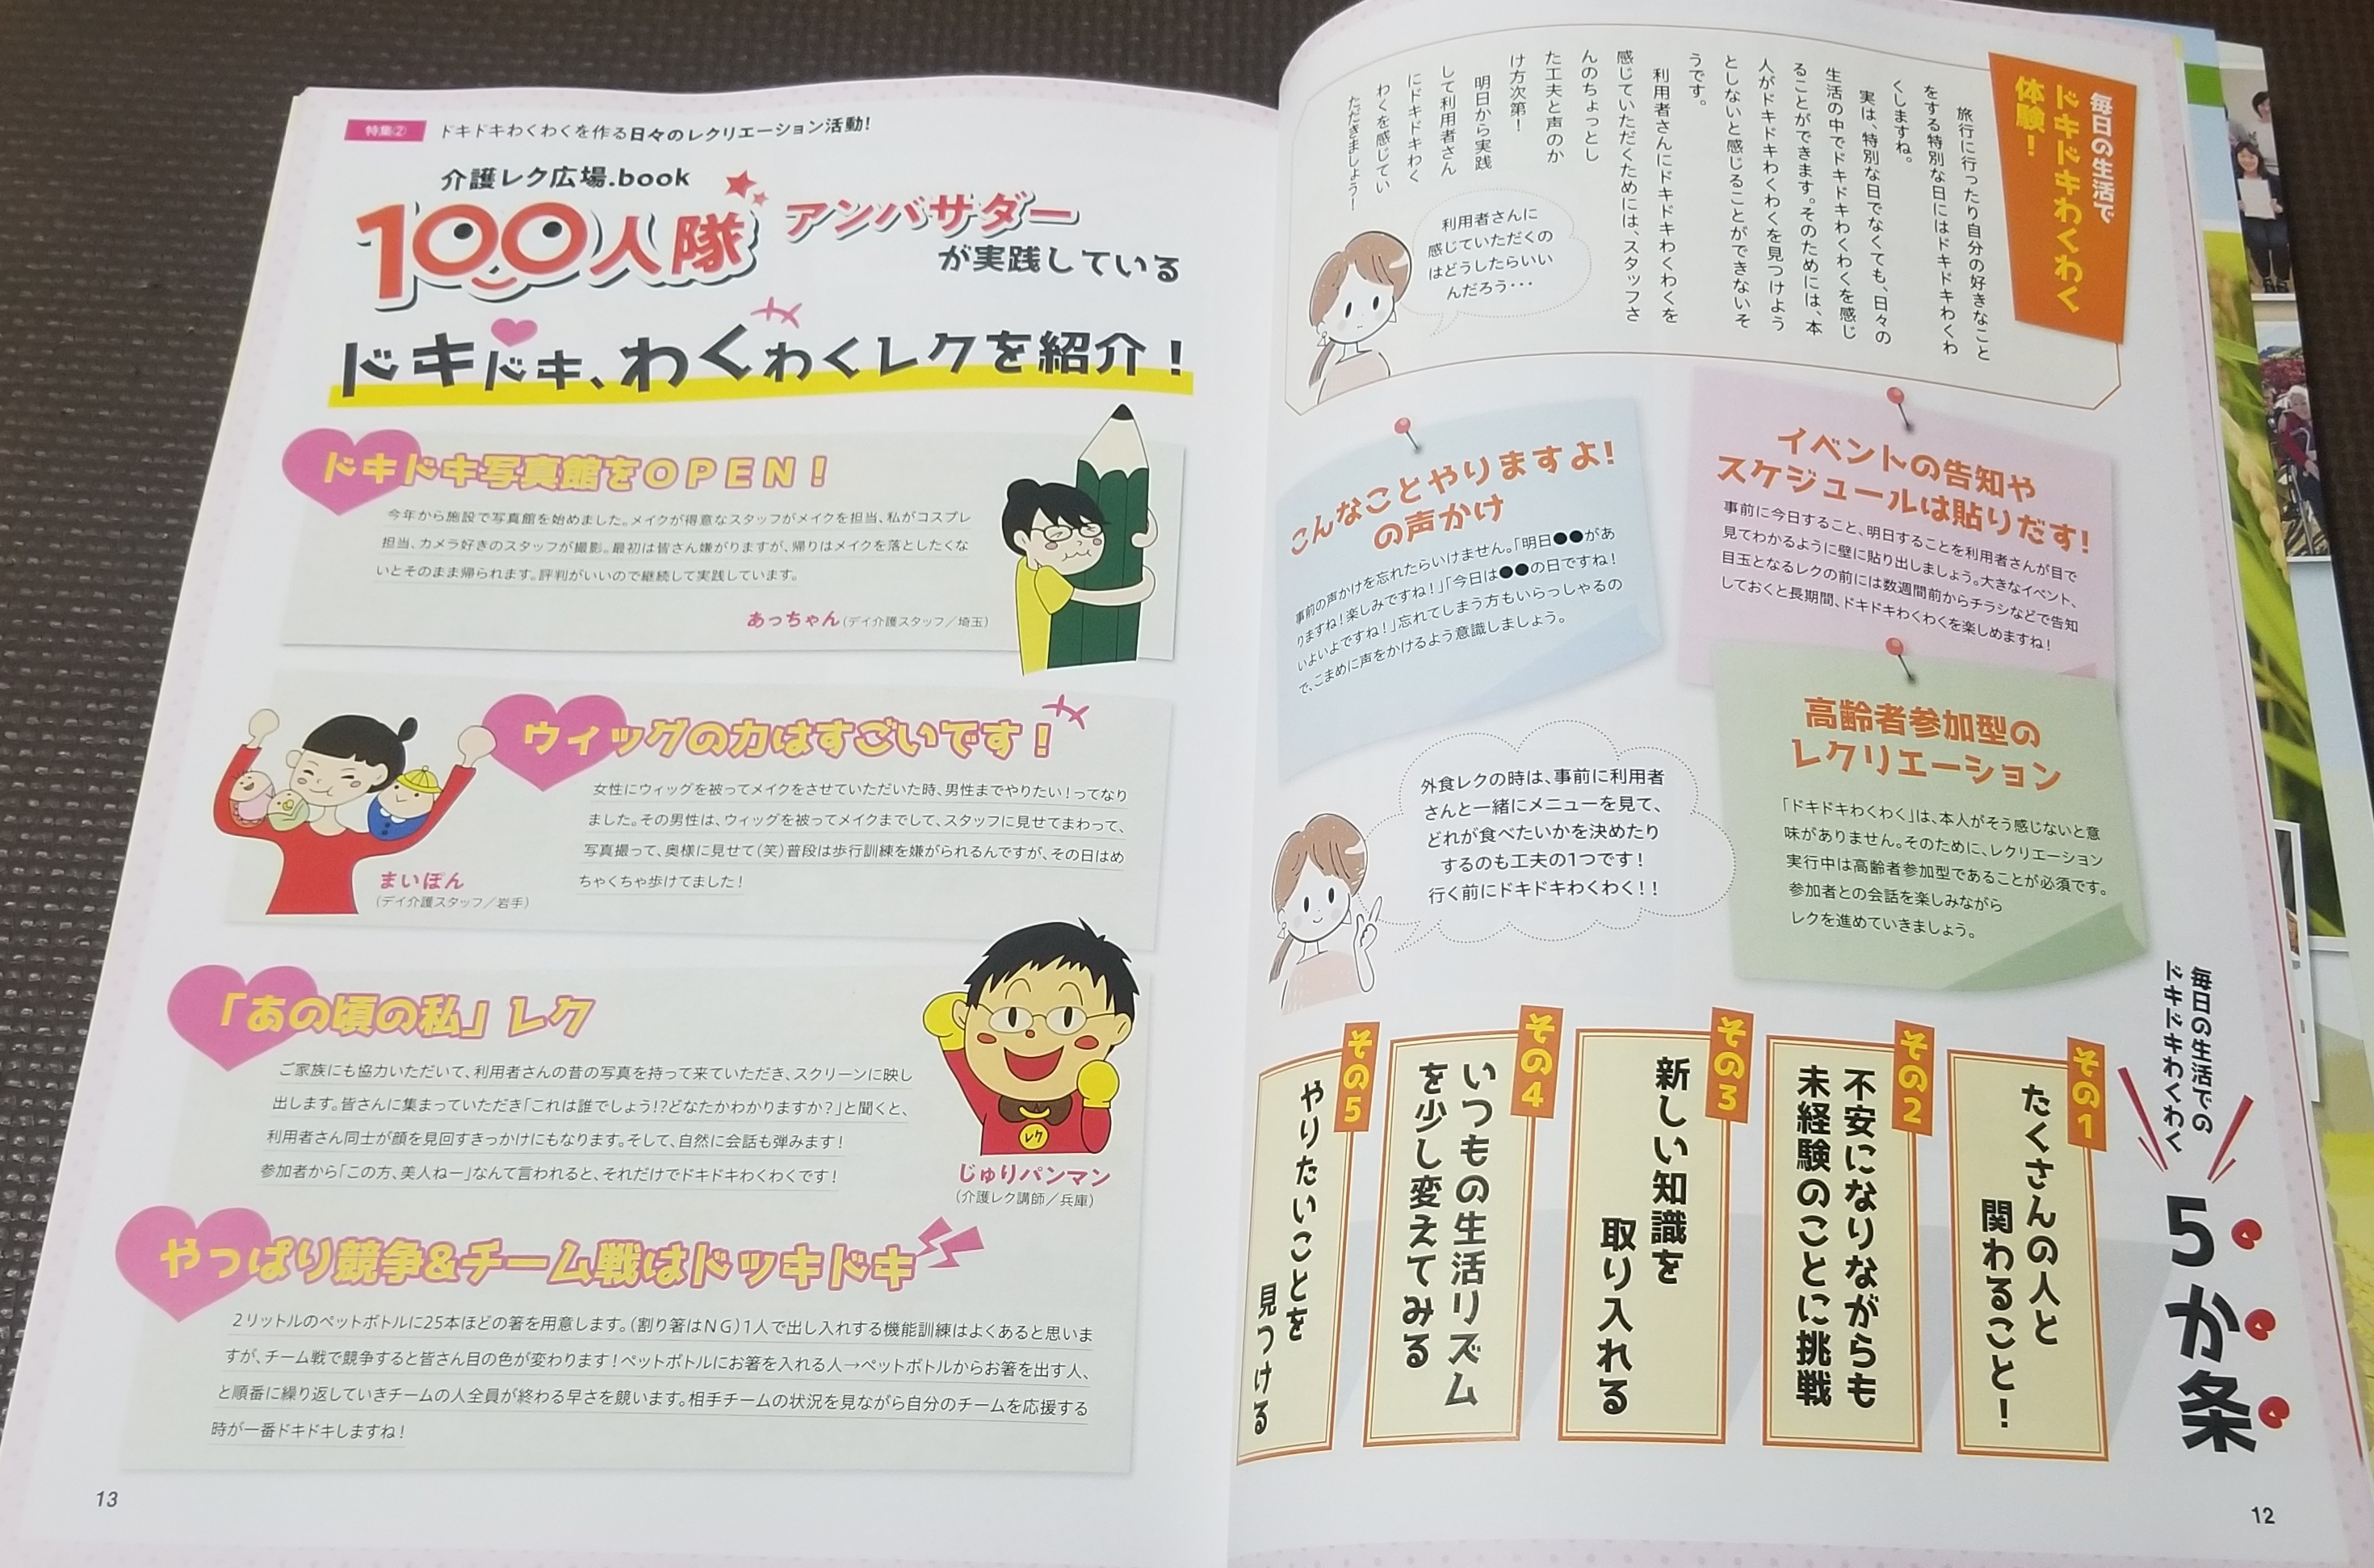 毎日の生活で
ドキドキわくわく
体験！
旅行に行ったり自分の好きなこと
をする特別な日にはドキドキわくわ
くしますね。
実は、特別な日でなくても、日々の
生活の中でドキドキわくわくを感じ
ることができます。そのためには、本
人がドキドキわくわくを見つけよう
としないと感じることができないそ
うです。
利用者さんにドキドキわくわくを
感じていただくためには、スタッフさ
んのちょっとし
た工夫と声のか
け方次第！
明日から実践
して利用者さん
にドキドキわく
わくを感じてい
ただきましょう！
利用者さんに
感じていただくの
はどうしたらいい
んだろう･･･
イベントの告知や
スケジュールは貼りだす！
事前に今日すること、明日することを利用者さんが目で
見てわかるように壁に貼り出しましょう。大きなイベント、
目玉となるレクの前には数週間前からチラシなどで告知
しておくと長期間、ドキドキわくわくを楽しめますね！
こんなことやりますよ！
の声かけ
事前の声かけを忘れたらいけません。「明日●●があ
りますね！楽しみですね！」「今日は●●の日ですね！
いよいよですね！」忘れてしまう方もいらっしゃるの
で、こまめに声をかけるよう意識しましょう。
高齢者参加型の
レクリエーション
「ドキドキわくわく」は、本人がそう感じないと意
味がありません。そのために、レクリエーション
実行中は高齢者参加型であることが必須です。
参加者との会話を楽しみながら
レクを進めていきましょう。
外食レクの時は、事前に利用者
さんと一緒にメニューを見て、
どれが食べたいかを決めたり
するのも工夫の1つです！
行く前にドキドキわくわく！！
毎日の生活での
ドキドキわくわく
5か条
その1
たくさんの人と
関わること！
その2
不安になりながらも
未経験のことに挑戦
その3
新しい知識を
取り入れる
その4
いつもの生活リズム
を少し変えてみる
その5
やりたいことを
見つける
12
特集② ドキドキわくわくを作る日々のレクリエーション活動！
介護レク広場.book
100人隊 アンバサダー
が実践している
ドキドキ、わくわくレクを紹介！
ドキドキ写真館をＯＰＥＮ！
今年から施設で写真館を始めました。メイクが得意なスタッフがメイクを担当、私がコスプレ
担当、カメラ好きのスタッフが撮影。最初は皆さん嫌がりますが、帰りはメイクを落としたくな
いとそのまま帰られます。評判がいいので継続して実践しています。
あっちゃん（デイ介護スタッフ／埼玉）
ウィッグの力はすごいです！
女性にウィッグを被ってメイクをさせていただいた時、男性までやりたい！ってなり
ました。その男性は、ウィッグを被ってメイクまでして、スタッフに見せてまわって、
写真撮って、奥様に見せて（笑）普段は歩行訓練を嫌がられるんですが、その日はめ
ちゃくちゃ歩けてました！
まいぽん
（デイ介護スタッフ／岩手）
「あの頃の私」レク
ご家族にも協力いただいて、利用者さんの昔の写真を持って来ていただき、スクリーンに映し
出します。皆さんに集まっていただき「これは誰でしょう!?どなたかわかりますか？」と聞くと、
利用者さん同士が顔を見回すきっかけにもなります。そして、自然に会話も弾みます！
参加者から「この方、美人ねー」なんて言われると、それだけでドキドキわくわくです！
レク
じゅりパンマン
（介護レク講師／兵庫）
やっぱり競争&チーム戦はドッキドキ
2リットルのペットボトルに25本ほどの箸を用意します。（割り箸はNG）1人で出し入れする機能訓練はよくあると思いま
すが、チーム戦で競争すると皆さん目の色が変わります！ペットボトルにお箸を入れる人→ペットボトルからお箸を出す人、
と順番に繰り返していきチームの人全員が終わる早さを競います。相手チームの状況を見ながら自分のチームを応援する
時が一番ドキドキしますね！
13